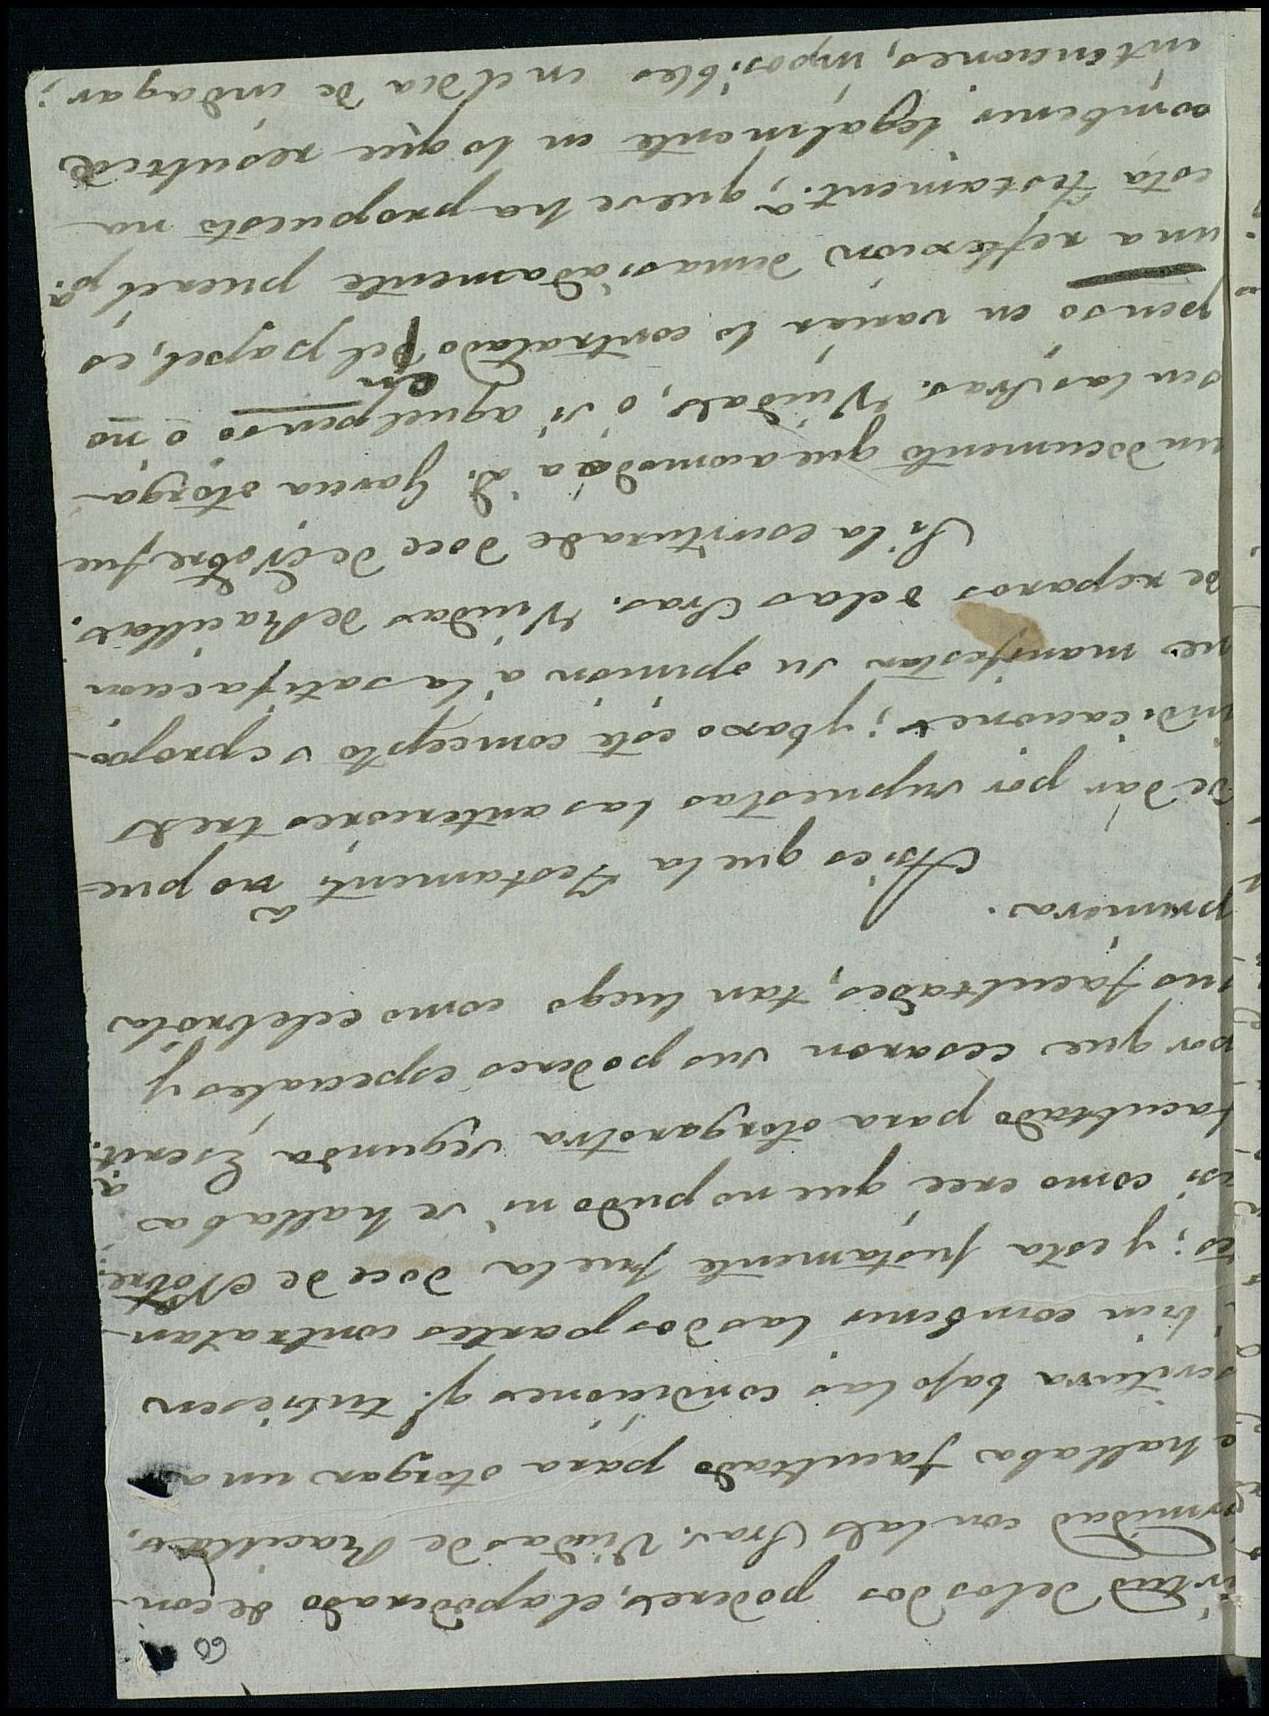 60
virtud delos dos poderes, el apoderado de con-
formidad con las Sras. Viudas de Racillas,
se hallaba facultado para otorgar una
escritura bajo las condiciones q.e tubiesen
a bien combenir las dos partes contratan-
tes; y esta justamente fue la doce de Nobre.:
asi como cree que no pudo ni se hallaba
facultado para otorgar otra segunda Escrit.a
por que cesaron sus poderes especiales y
sus facultades, tan luego como celebró la
primera.
Asi es que la Testament.a no pue-
de dár por supuestas las anteriores tres
indicaciones; y baxo este comcepto se propo-
ne manifestar su opinion á la satisfaccion
de reparos delas Sras. Viudas de Racillas.
Si la escritura de doce de Nobre fue
un documento que acomodó a D. Garcia otorgá-
sen las Sras. Viudas, ó si aquel penso ó no
en
penso en variar lo contratado del papel, es
una reflexion demasiadamente pueril p.a
esta testament.a, que se ha propuesto na
combenir legalmente en lo que resulte de
intenciones, imposibles en el dia de indagar;